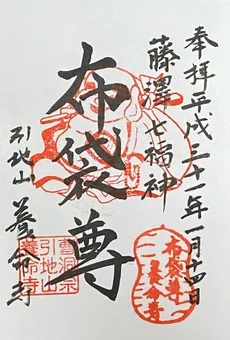 奉拝平成三十一年一月十四日
藤澤七福神
布袋尊
引地山 養命寺
布袋尊
養命寺
曹洞宗
引地山
養命寺